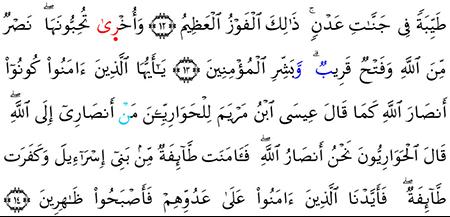 طَيِّبَةً فِى جَنَّـٰتِ عَدْنٍۢ ۚ ذَٰلِكَ ٱلْفَوْزُ ٱلْعَظِيمُ ﴿١٢﴾ وَأُخْرَىٰ تُحِبُّونَهَا ۖ نَصْرٌۭ
مِّنَ ٱللَّهِ وَفَتْحٌۭ قَرِيبٌۭ ۗ وَبَشِّرِ ٱلْمُؤْمِنِينَ ﴿١٣﴾ يَـٰٓأَيُّهَا ٱلَّذِينَ ءَامَنُوا۟ كُونُوٓا۟
أَنصَارَ ٱللَّهِ كَمَا قَالَ عِيسَى ٱبْنُ مَرْيَمَ لِلْحَوَارِيِّـۧنَ مَنْ أَنصَارِىٓ إِلَى ٱللَّهِ ۖ
قَالَ ٱلْحَوَارِيُّونَ نَحْنُ أَنصَارُ ٱللَّهِ ۖ فَـَٔامَنَت طَّآئِفَةٌۭ مِّنۢ بَنِىٓ إِسْرَٰٓءِيلَ وَكَفَرَت
طَّآئِفَةٌۭ ۖ فَأَيَّدْنَا ٱلَّذِينَ ءَامَنُوا۟ عَلَىٰ عَدُوِّهِمْ فَأَصْبَحُوا۟ ظَـٰهِرِينَ ﴿١٤﴾